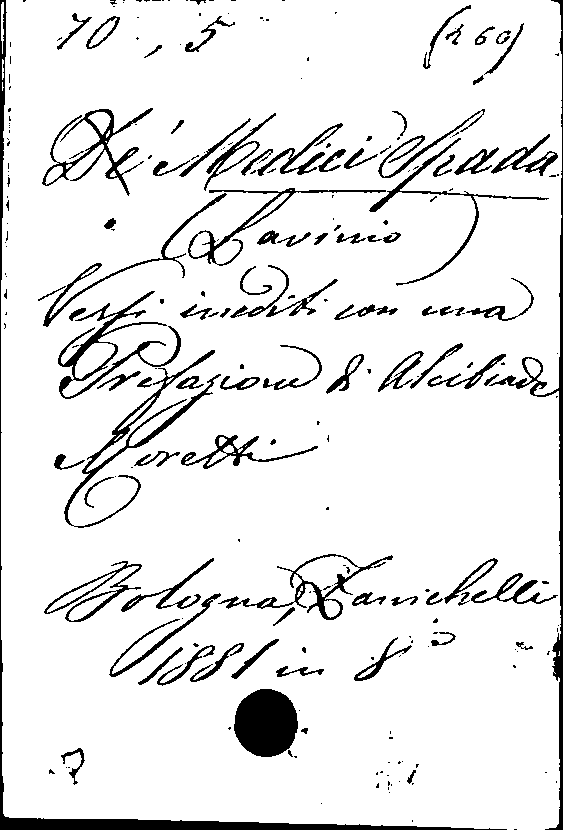 70, 5 (260)
De' Medici Spada
(Lavinio)
Versi inediti con una
Prefazione di Alcibiade
Moretti
Bologna, Zanichelli
1881 in 8°